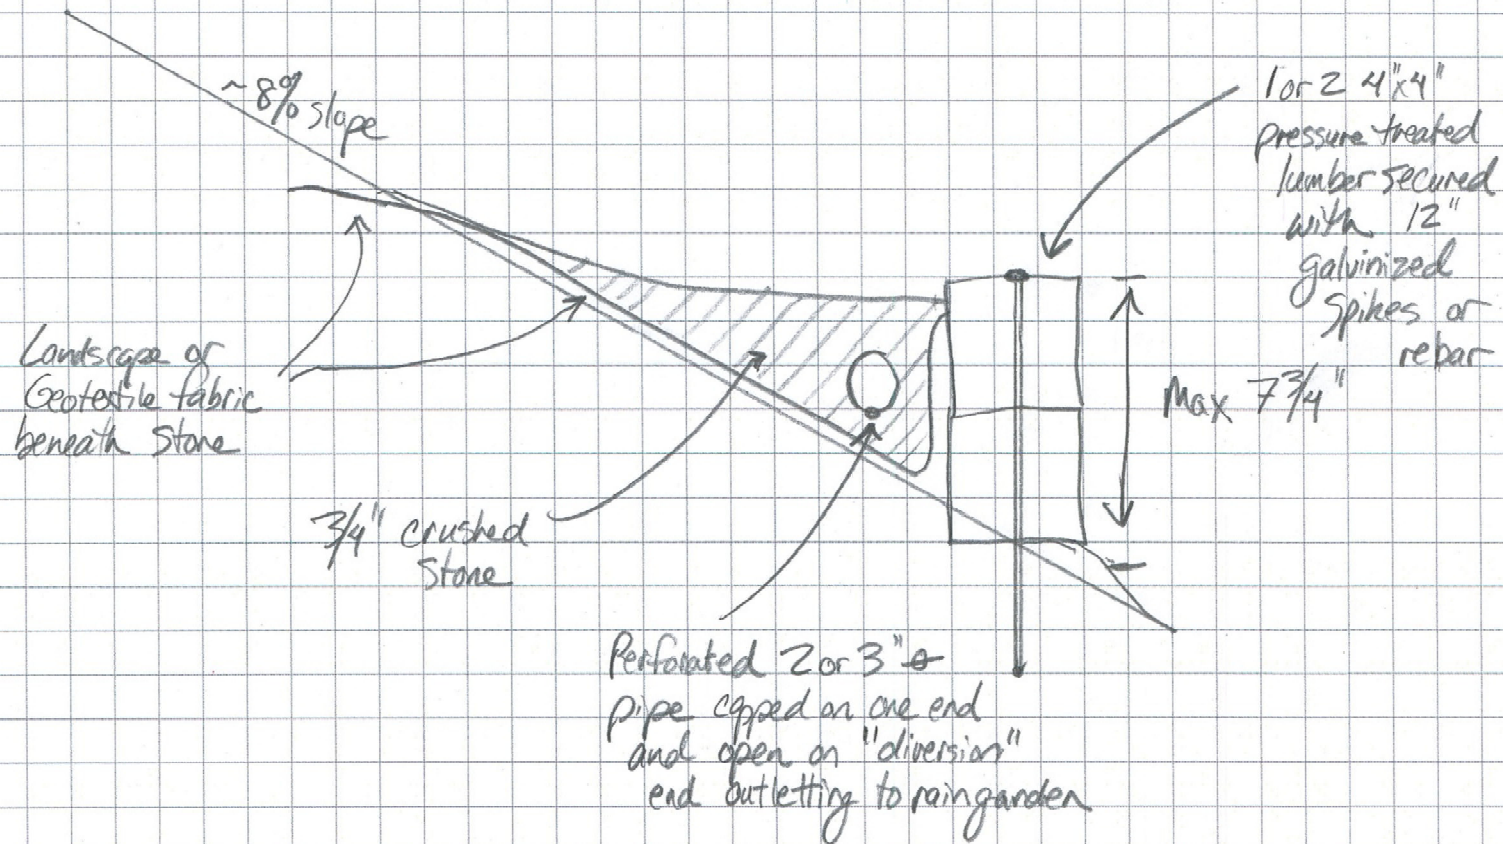 ~8% slope
1 or 2 4"x4"
pressure treated
lumber secured
with 12"
galvinized
spikes or
rebar
Max 7 3/4"
Landscape or
Geotextile fabric
beneath stone
3/4" crushed
stone
Perforated 2 or 3" ⌀
pipe capped on one end
and open on "diversion"
end outletting to raingarden